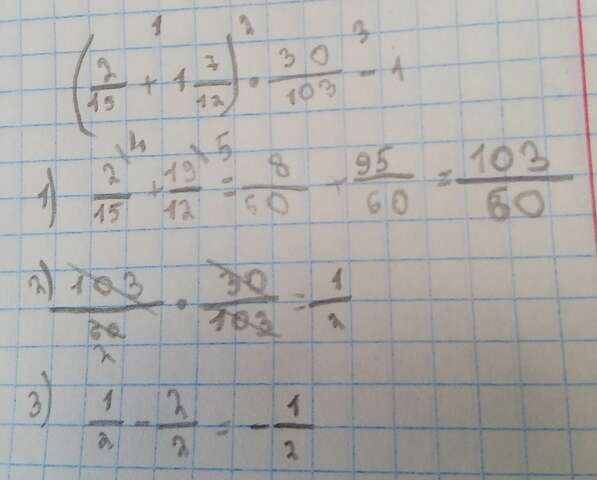 (2/15 + 1 7/12) · 30/103 - 1
1) 2/15 + 19/12 = 8/60 + 95/60 = 103/60
2) 103/60 · 30/103 = 1/2
3) 1/2 - 2/2 = - 1/2